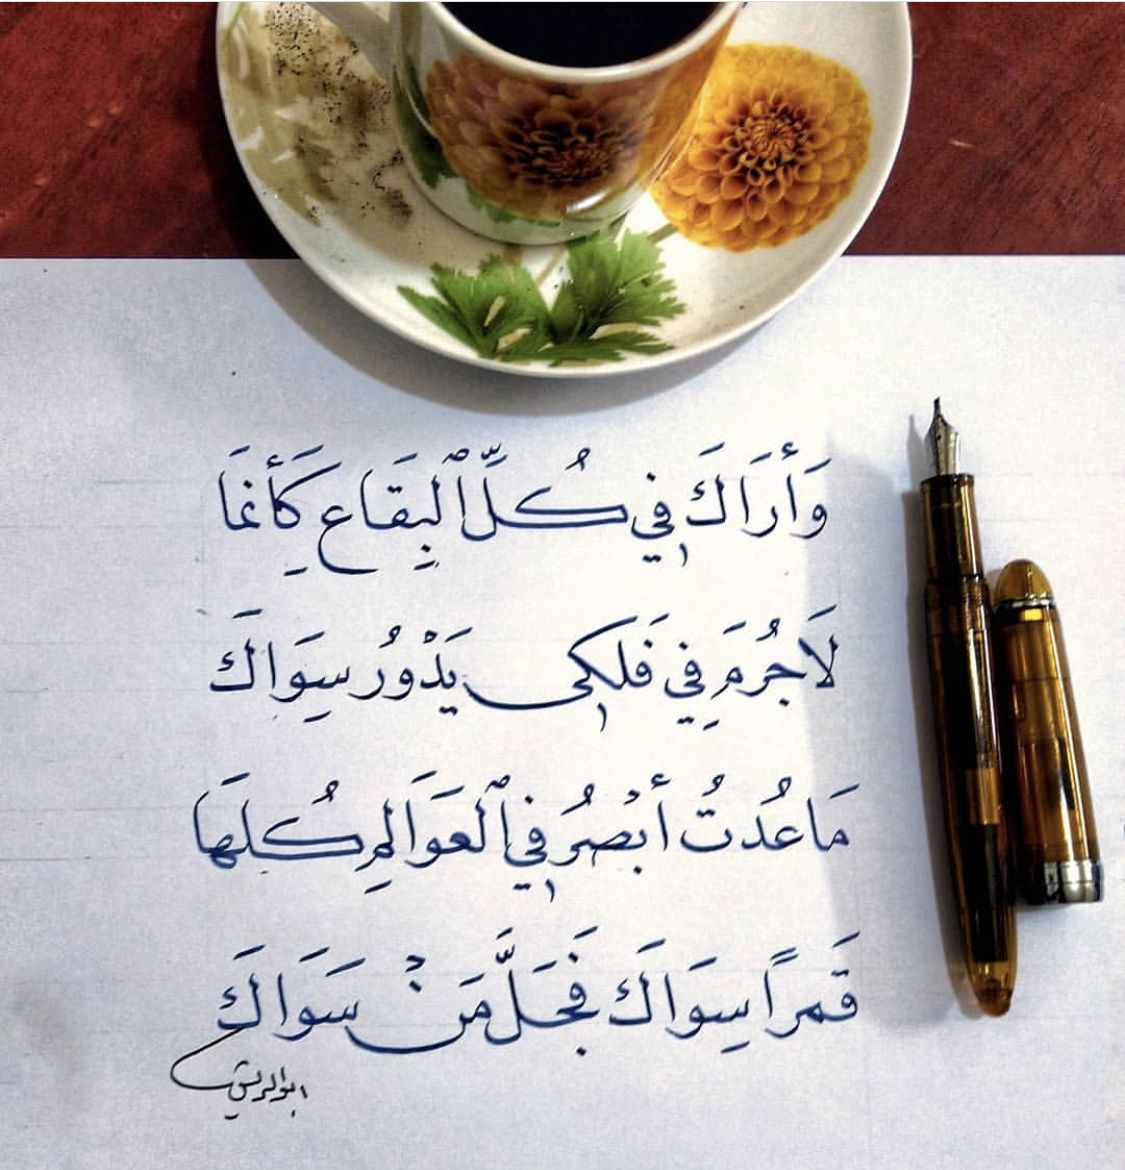 وَأَرَاكَ فِي كُلِّ ٱلْبِقَاعِ كَأَنَّمَا
لَا جُرْمَ فِي فَلَكِي يَدُورُ سِوَاكَ
مَا عُدْتُ أُبْصِرُ فِي ٱلْعَوَالِمِ كُلِّهَا
قَمَرًا سِوَاكَ فَجَلَّ مَنْ سَوَّاكَ